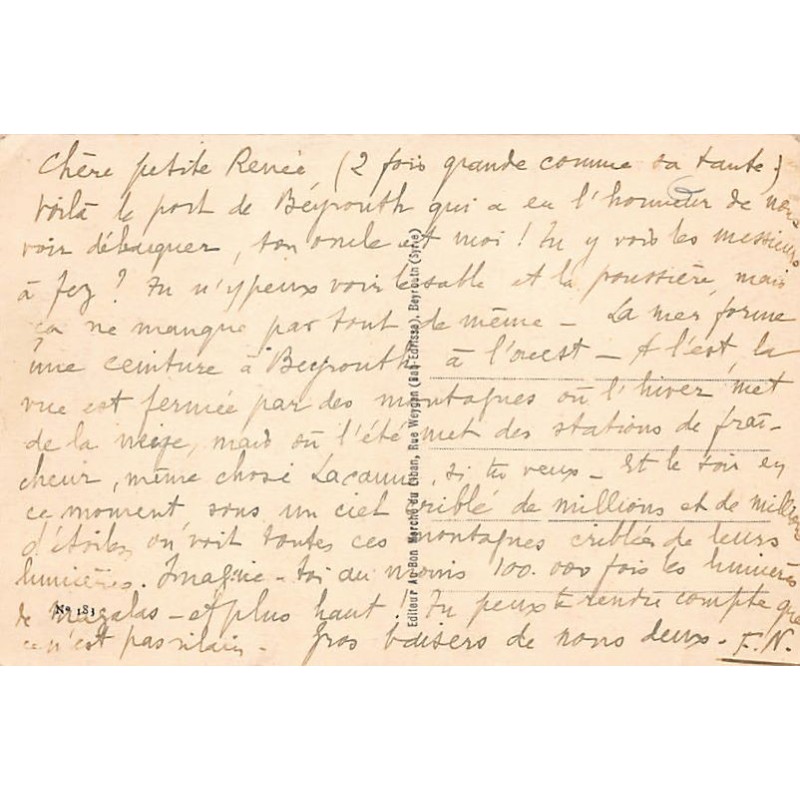 Chère petite Renée (2 fois grande comme sa tante)
Voilà le port de Beyrouth qui a eu l'honneur de nous
voir débarquer, ton oncle et moi ! Tu y vois les messieurs
à fez ? Tu n'y peux voir le sable et la poussière, mais
ça ne manque pas tout de même – La mer forme
une ceinture à Beyrouth à l'ouest – A l'est, la
vue est fermée par des montagnes où l'hiver met
de la neige, mais où l'été met des stations de fraî-
cheur, même chose Lacaune, si tu veux – Et le soir en
ce moment sous un ciel criblé de millions et de millions
d'étoiles, on voit toutes ces montagnes criblées de leurs
lumières. Imagine-toi au moins 100.000 fois les lumières
de – et plus haut ! Tu peux te rendre compte que
ce n'est pas vilain – Gros baisers de nous deux – F.N.
Nº 183
Editeur Au Bon Marché du Liban, Rue Weygan (Bab Edrisse), Beyrouth (Syrie)